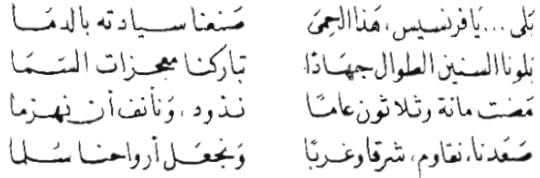 بَلى ... يَا فرنسيس، هَذا الحِمَىَ صَنعنا سيادته بالدمَا
بَلونا السنين الطوال جهَادًا تباركنا معجزات السَمَا
مَضت مائة وثلاثون عامًا نذود، وَنأنف أن نهزما
صَعَدنا، نقاوم، شرقا وغربًا وَنجعَل أرواحنا سَلما